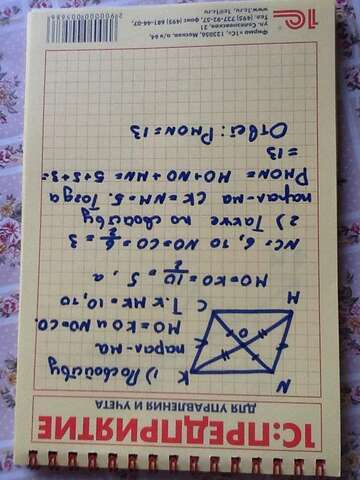 1С:ПРЕДПРИЯТИЕ
ДЛЯ УПРАВЛЕНИЯ И УЧЕТА
N
K
O
M
C
1) По свойству
парал-ма
MO=KO и NO=CO.
Т.к. MK=10, то
MO=KO=10/2=5, а
NC=6, то NO=CO=6/2=3
2) Также по свойству
парал-ма CK=NM=5. Тогда
PMON=MO+NO+MN=5+5+3=
=13
Ответ: PMON=13
1С
Фирма «1С», 123056, Москва, а/я 64,
ул. Селезневская, 21
Тел. (495) 737-92-57, факс (495) 681-44-07,
www.1c.ru, 1c@1c.ru